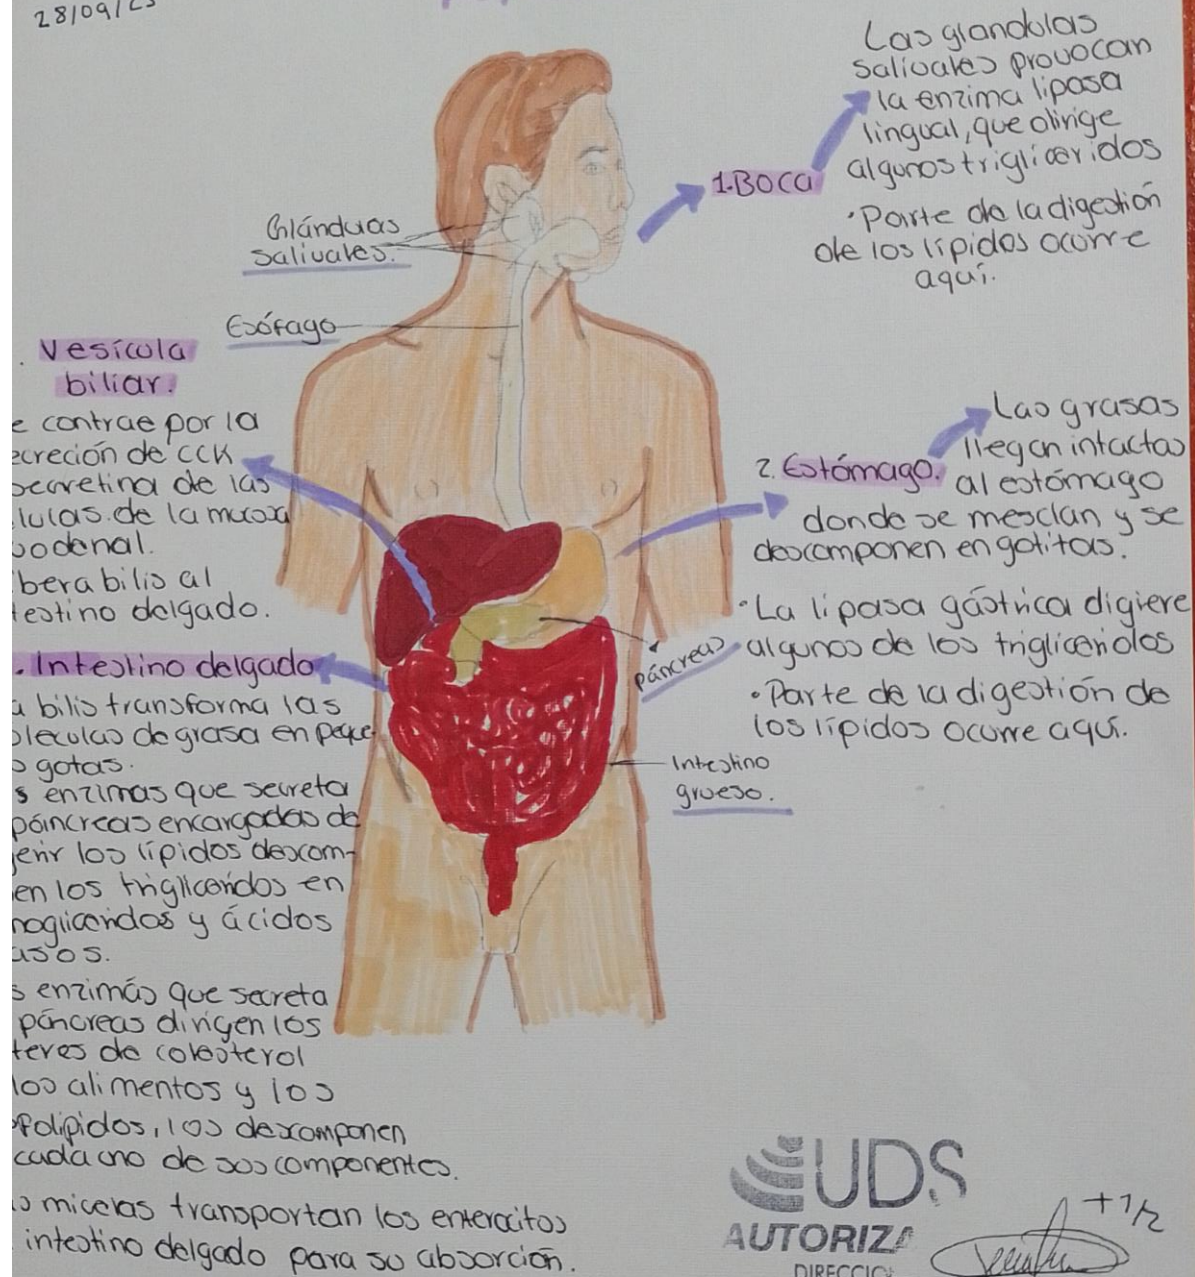 28/09/23
Las glandulas
salivales provocan
la enzima lipasa
lingual, que dirige
algunos trigliceridos
1. Boca
• Parte de la digestión
de los lípidos ocurre
aquí.
Glándulas
salivales.
Esófago
. Vesícula
biliar.
e contrae por la
ecreción de CCK
secretina de las
lulas de la mucosa
odenal.
bera bilis al
testino delgado.
2. Estómago.
Las grasas
llegan intactas
al estómago
donde se mesclan y se
descomponen en gotitas.
• La lipasa gástrica digiere
algunos de los trigliceridos
• Parte de la digestión de
los lípidos ocurre aquí.
páncreas
Intestino
grueso.
. Intestino delgado
a bilis transforma las
oleculas de grasa en peque
s gotas.
s enzimas que secreta
páncreas encargadas de
erir los lípidos descom-
en los trigliceridos en
noglicéridos y ácidos
asos.
s enzimás que secreta
páncreas dirigen los
teres de colesterol
los alimentos y los
sfolípidos, los descomponen
cada uno de sus componentes.
s micelas transportan los enterocitos
intestino delgado para su absorción.
UDS
AUTORIZA
DIRECCIO
+1/2